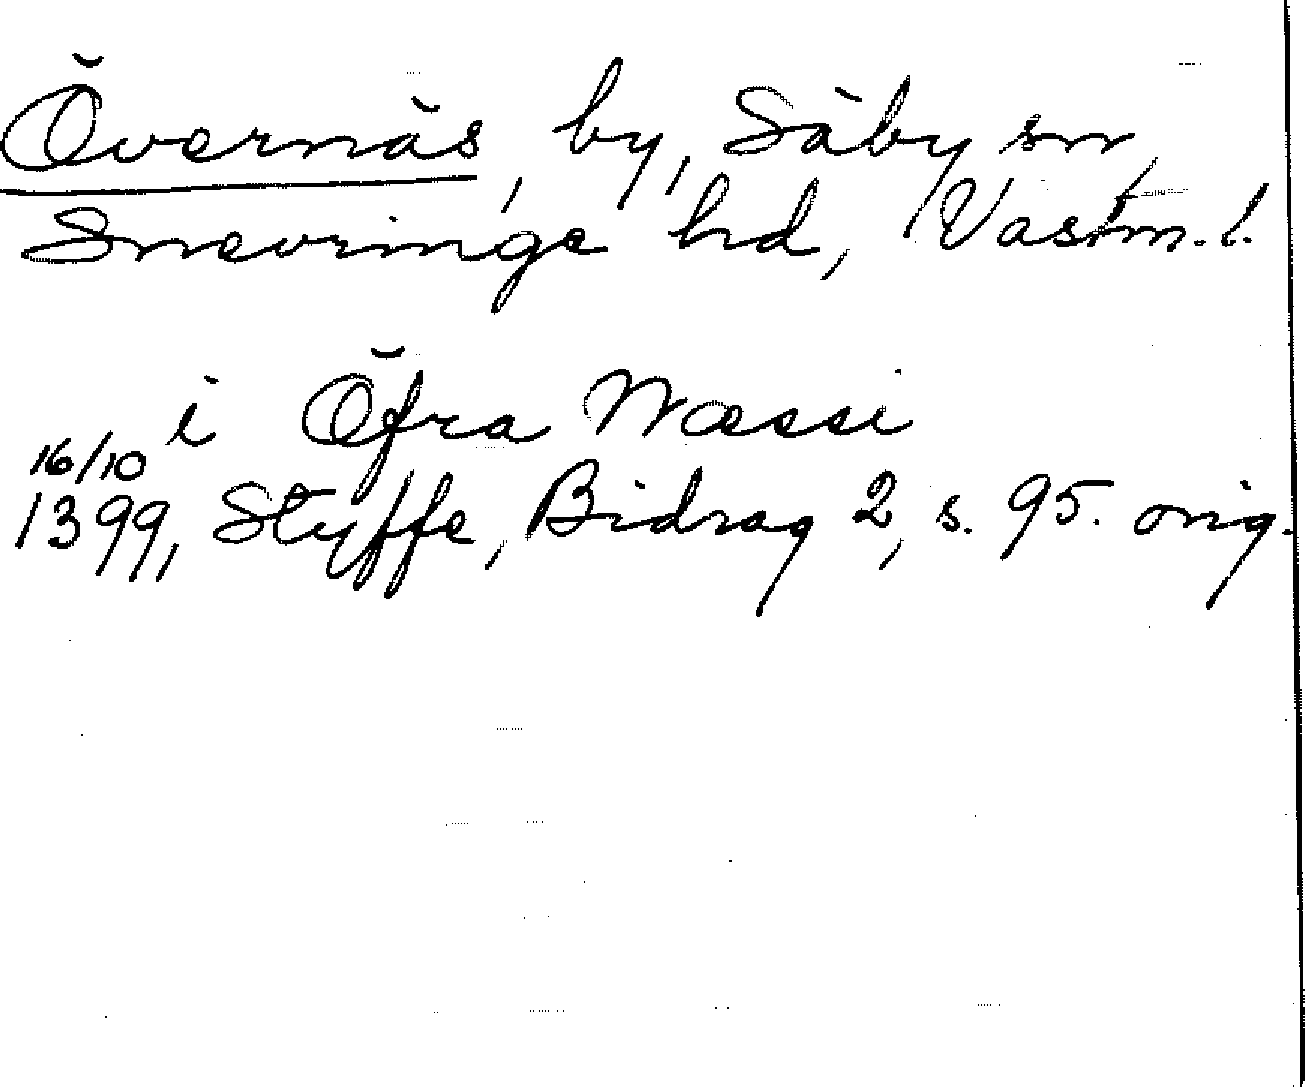 Övernäs, by, Säby sn,
Snevringe hd, Västm. l.
i Öfra Næssi
16/10
1399, Styffe, Bidrag 2, s. 95. orig.